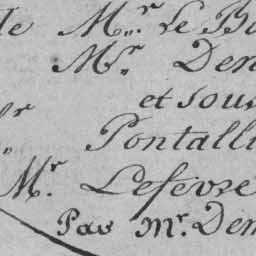 Mr. Le Bo
Mr. Den
et sous
Pontalli
Mr. Lefevre
Par Mr. Dem